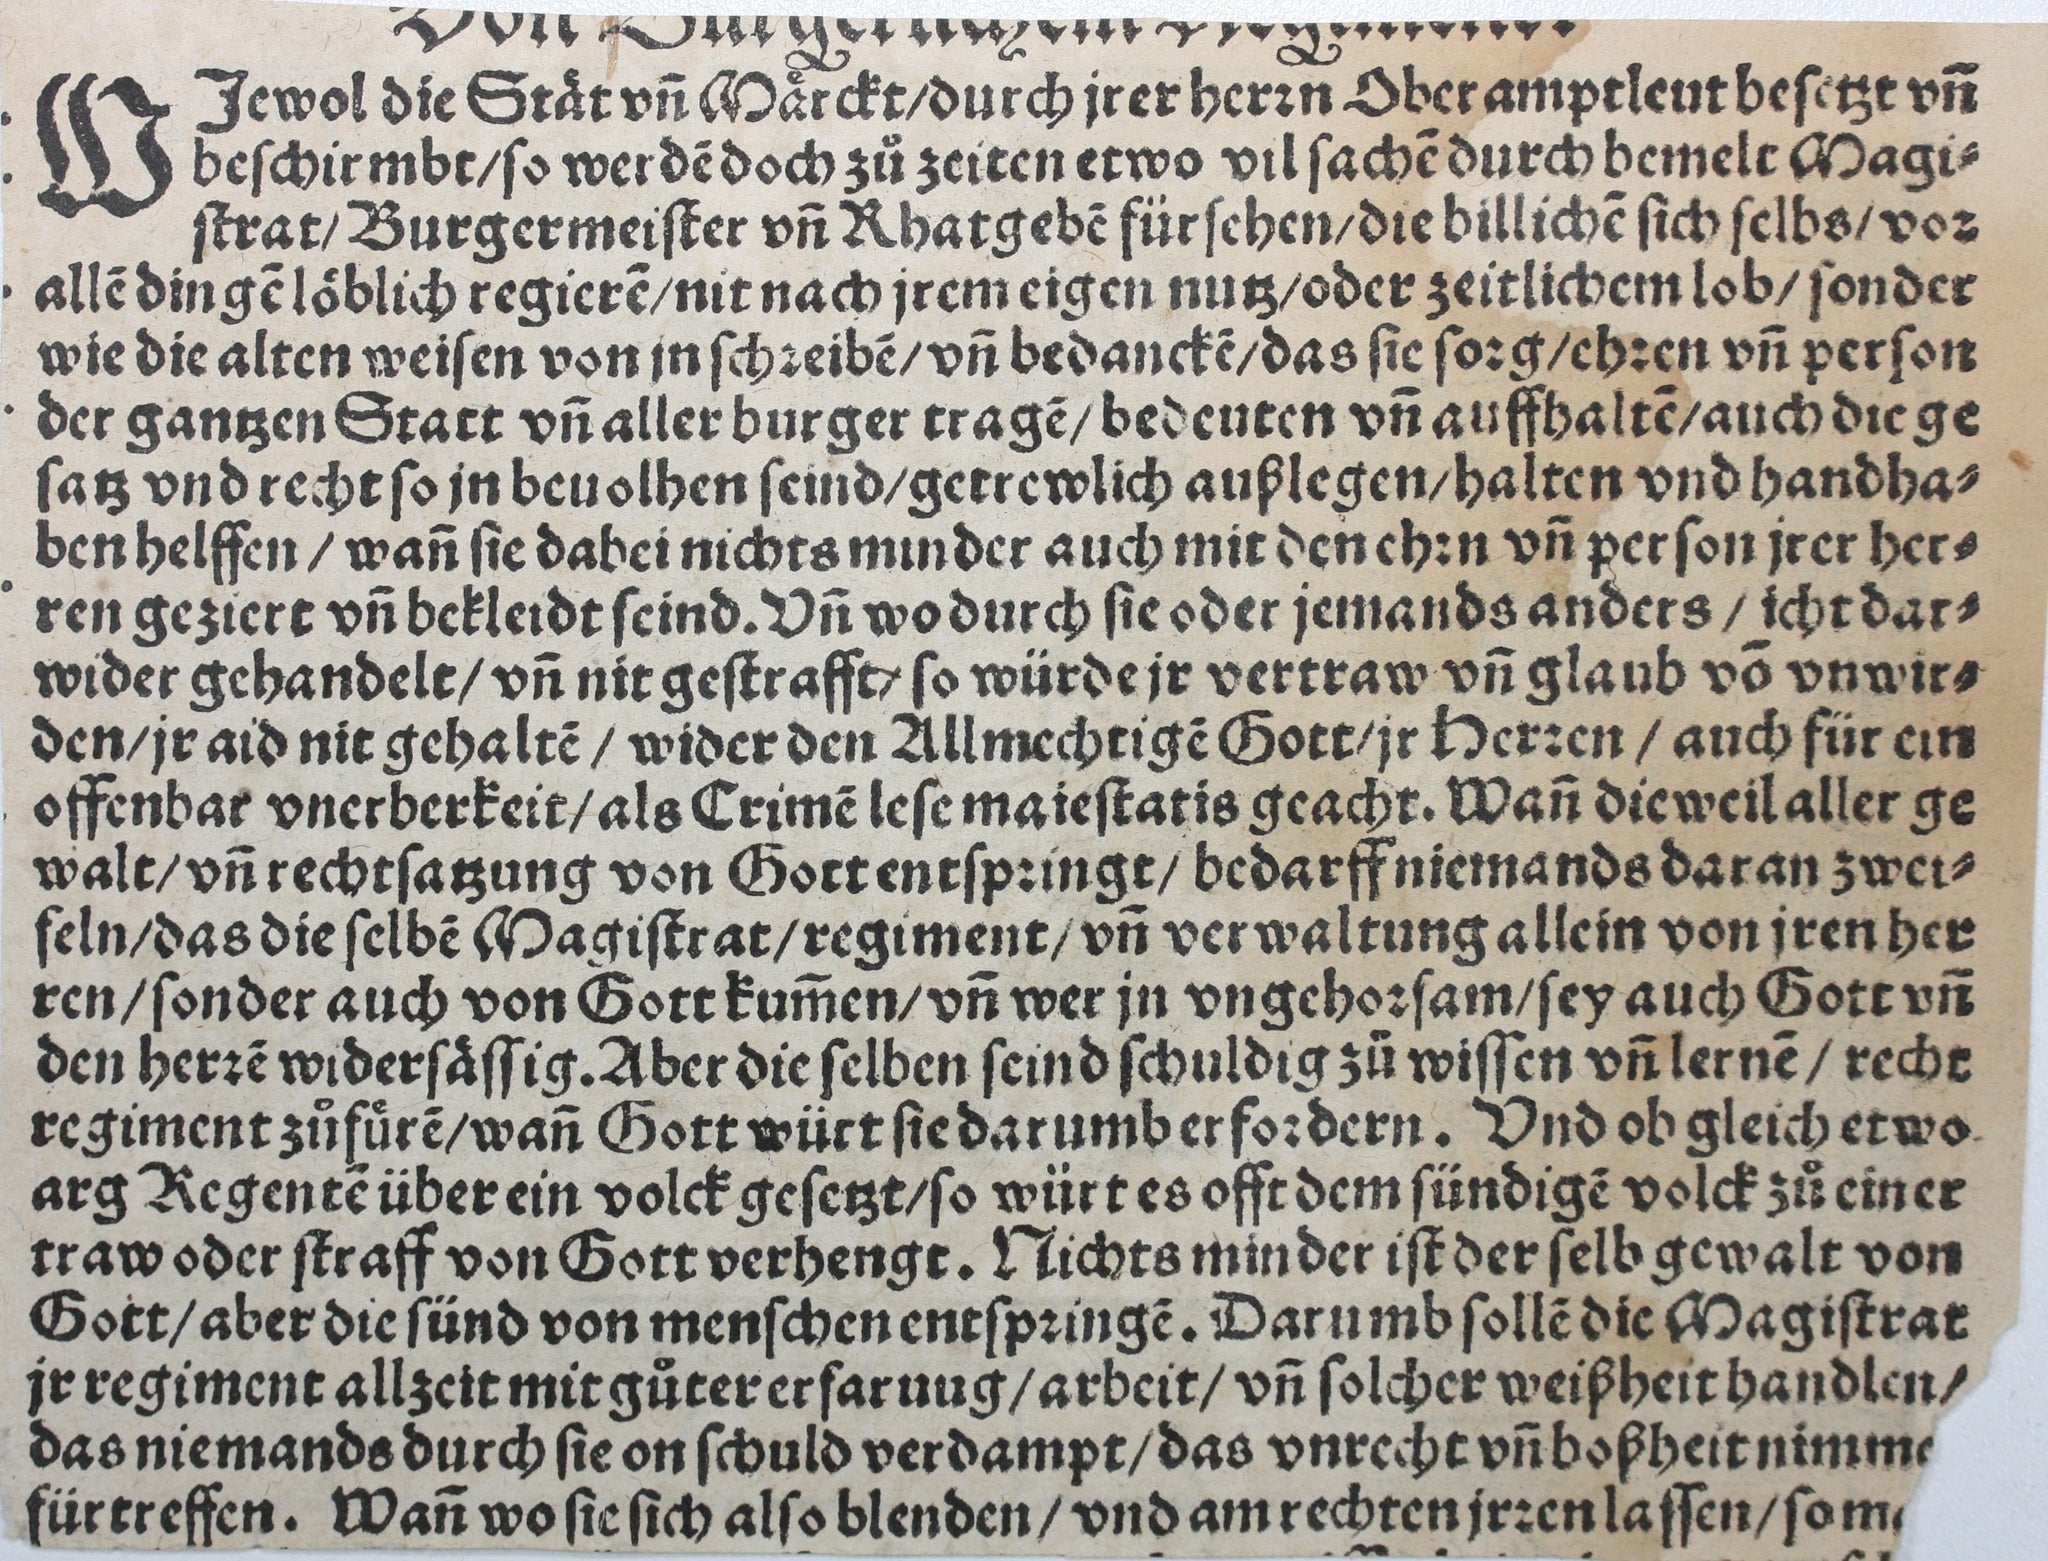 Von Burgerlichem Regiment.
WJewol die Stät vñ Maͤrckt/durch jrer herꝛn Oberamptleut besetzt vñ
beschirmbt/so werdē doch zuͦ zeiten etwo vil sachē durch bemelt Magi-
strat/ Burgermeister vñ Rhatgebē fürsehen/die billichē sich selbs/ voꝛ
allē dingē löblich regierē/nit nach jrem eigen nutz/oder zeitlichem lob/ sonder
wie die alten weisen von jn schꝛeibē/ vñ bedanckē/das sie soꝛg/ehꝛen vñ person
der gantzen Statt vñ aller burger tragē/ bedeuten vñ auffhaltē/auch die ge
satz vnd recht so jn beuolhen seind/getrewlich außlegen/halten vnd handha-
ben helffen / wañ sie dabei nichts minder auch mit den ehꝛn vñ person jrer her-
ren geziert vñ bekleidt seind. Vñ wo durch sie oder jemands anders / icht dar-
wider gehandelt/ vñ nit gestrafft/ so würde jr vertraw vñ glaub vō vnwir-
den/jr aid nit gehaltē / wider den Allmechtigē Gott/jr Herꝛen / auch für ein
offenbar vnerberkeit/als Crimē lese maiestatis geacht. Wañ dieweil aller ge
walt/ vñ rechtsatzung von Gott entspꝛingt/ bedarff niemands daran zwei-
feln/das die selbē Magistrat/regiment/vñ verwaltung allein von jren her
ren/sonder auch von Gott kum̄en/vñ wer jn vngehoꝛsam/sey auch Gott vñ
den herꝛē widersässig. Aber die selben seind schuldig zuͦ wissen vñ lernē/ recht
regiment zuͦfuͤrē/wañ Gott würt sie darumb erfoꝛdern. Vnd ob gleich etwo
arg Regentē über ein volck gesetzt/so würt es offt dem sündigē volck zuͦ einer
traw oder straff von Gott verhengt. Nichts minder ist der selb gewalt von
Gott/aber die sünd von menschen entspꝛingē. Darumb sollē die Magistrat
jr regiment allzeit mit guͦter erfaruug/arbeit/ vñ solcher weißheit handlen/
das niemands durch sie on schuld verdampt/das vnrecht vñ boßheit nimme
fürtreffen. Wañ wo sie sich also blenden/ vnd am rechten jrꝛen lassen/so